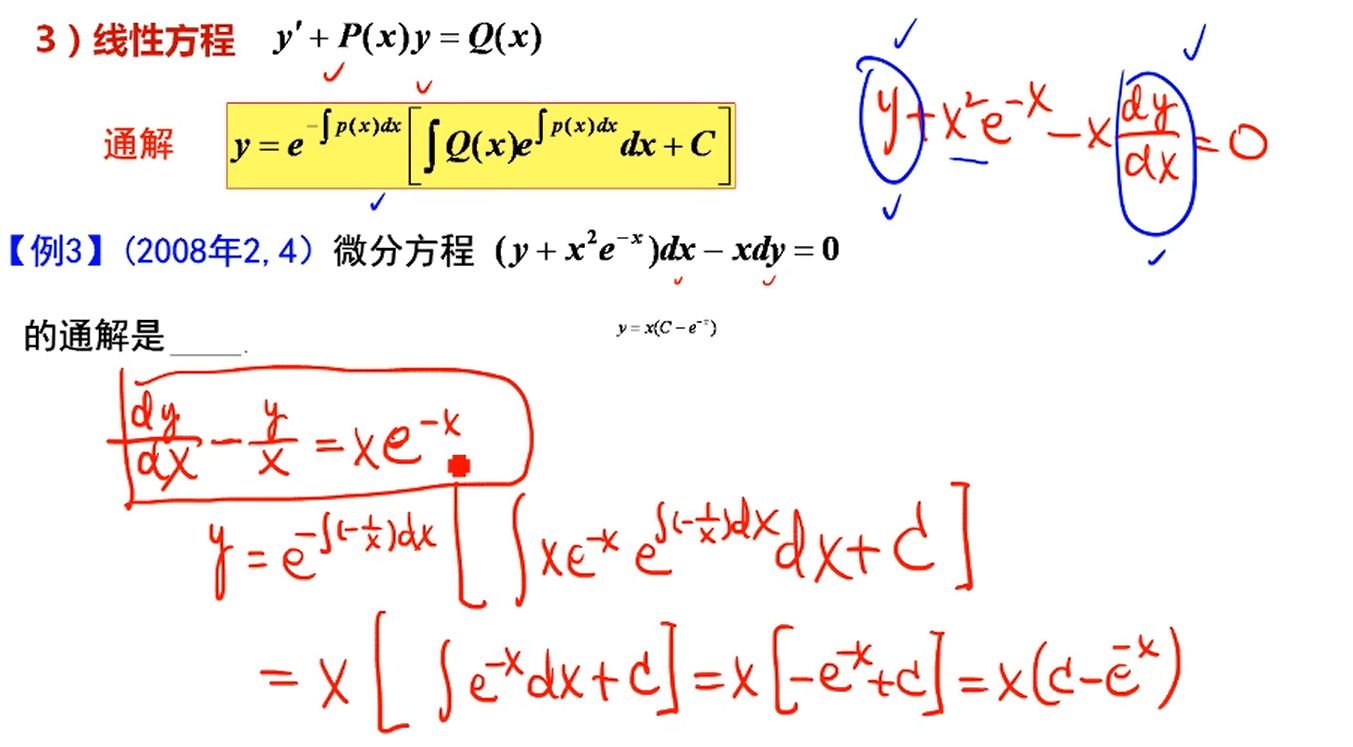 3）线性方程 y′ + P(x)y = Q(x)
通解 y = e^{-∫p(x)dx}[∫Q(x)e^{∫p(x)dx}dx + C]
y + x²e^{-x} - x dy/dx = 0
【例3】(2008年2,4）微分方程 (y + x²e^{-x})dx - xdy = 0
的通解是____.
y = x(C - e^{-x})
dy/dx - y/x = xe^{-x}
y = e^{-∫(-1/x)dx}[∫xe^{-x}e^{∫(-1/x)dx}dx + C]
= x[∫e^{-x}dx + C] = x[-e^{-x} + C] = x(C - e^{-x})